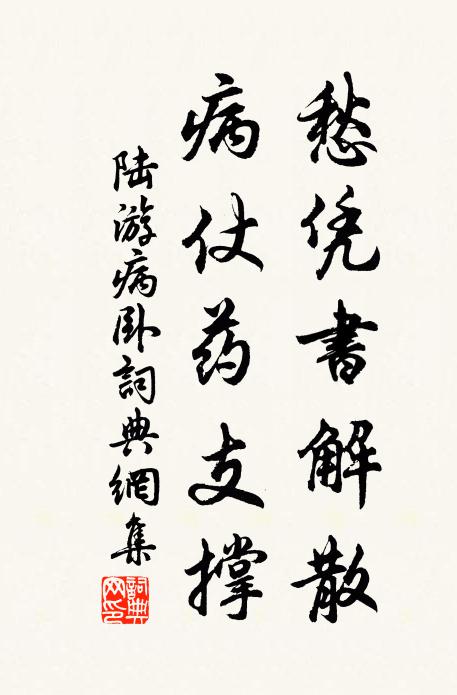 愁凭書解散
病仗药支撑
陆游病卧詞典網集
詞典网印